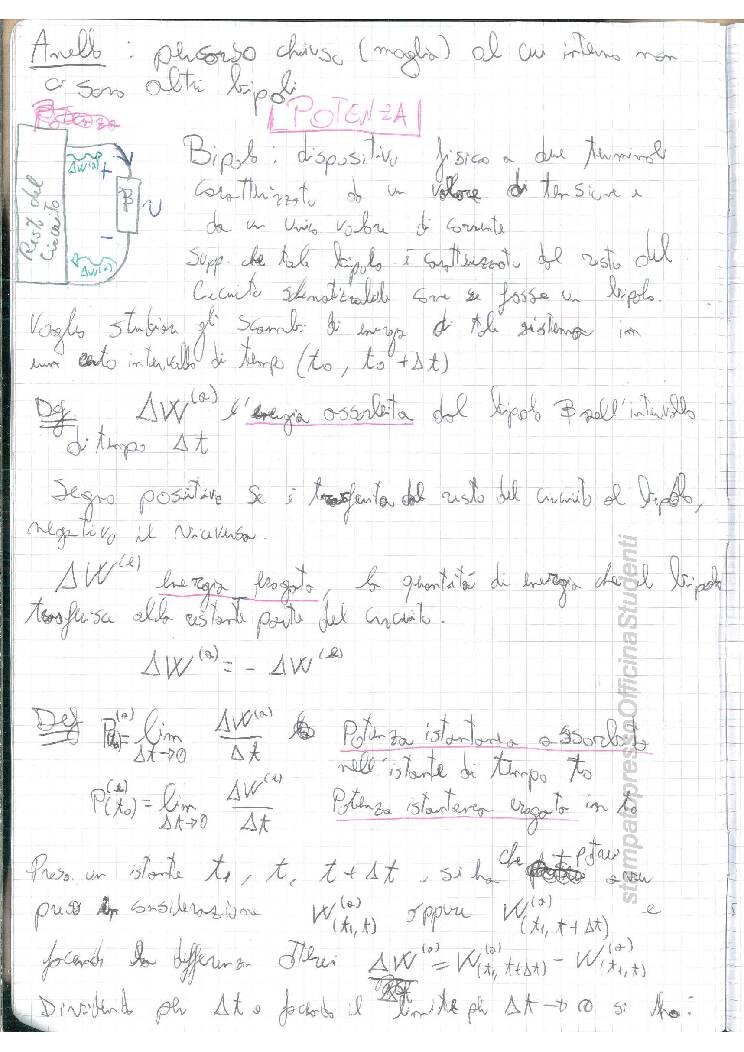 Anello : percorso chiuso (maglia) al cui interno non
ci sono altri bipoli.
POTENZA
Resto del circuito
ΔW(a)
+
B
v
-
ΔW(e)
Bipolo : dispositivo fisico a due terminali
caratterizzato da un valore di tensione e
da un unico valore di corrente
Supp. che tale bipolo è caratterizzato dal resto del
circuito schematizzabile come se fosse un bipolo.
Voglio studiare gli scambi di energia di tale sistema in
un certo intervallo di tempo (t0, t0 + Δt)
Def ΔW(a) è l'energia assorbita dal bipolo B nell'intervallo
di tempo Δt
Segno positivo se è trasferita dal resto del circuito al bipolo,
negativo il viceversa.
ΔW(e) energia erogata, la quantità di energia che il bipolo
trasferisce alla restante parte del circuito.
ΔW(a) = - ΔW(e)
Def P(a)(t0) = lim Δt→0 ΔW(a)/Δt Potenza istantanea assorbita
nell'istante di tempo t0
P(e)(t0) = lim Δt→0 ΔW(e)/Δt Potenza istantanea erogata in t0
Preso un istante t1, t, t + Δt, si ha che
preso in considerazione W(a)(t1, t) oppure W(a)(t1, t+Δt) e
facendo la differenza ΔW(a) = W(a)(t1, t+Δt) - W(a)(t1, t)
Dividendo per Δt e facendo il limite per Δt → 0 si ha:
stampatopressoOfficinaStudenti